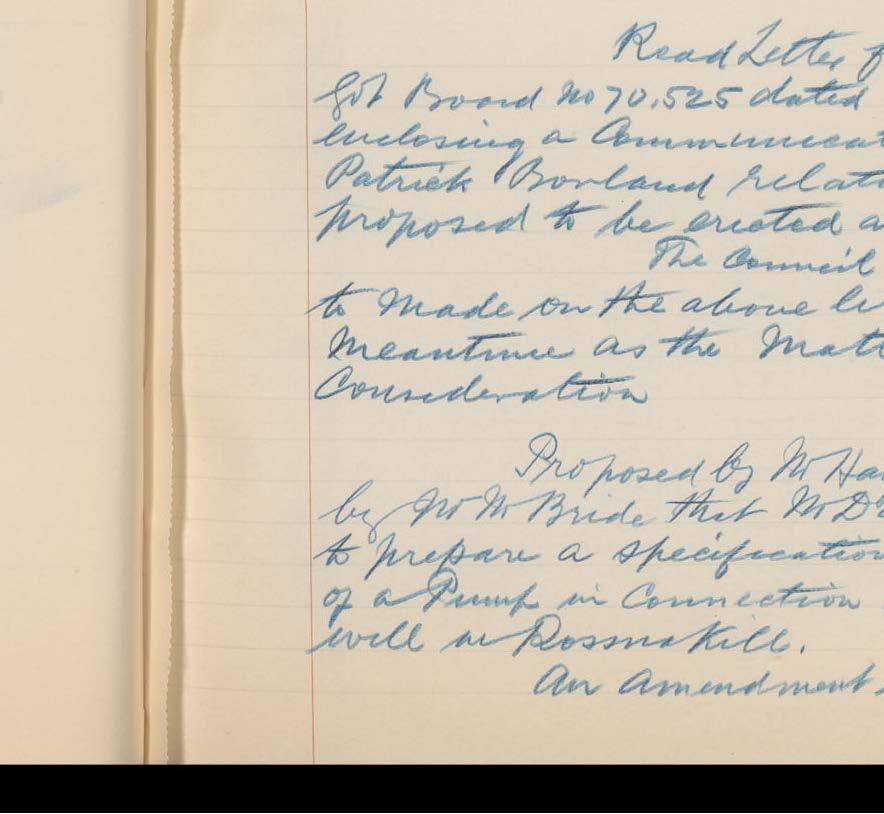 Read Letter f
Got Board No 70.525 dated
enclosing a Communicat
Patrick Borland relati
proposed to be erected a
The Council
to Made on the above le
Meantime as the Matt
Consideration
Proposed by Mr Ha
by Mr McBride that Mr D
to prepare a specification
of a Pump in Connection
well in Rossnakill.
An Amendment